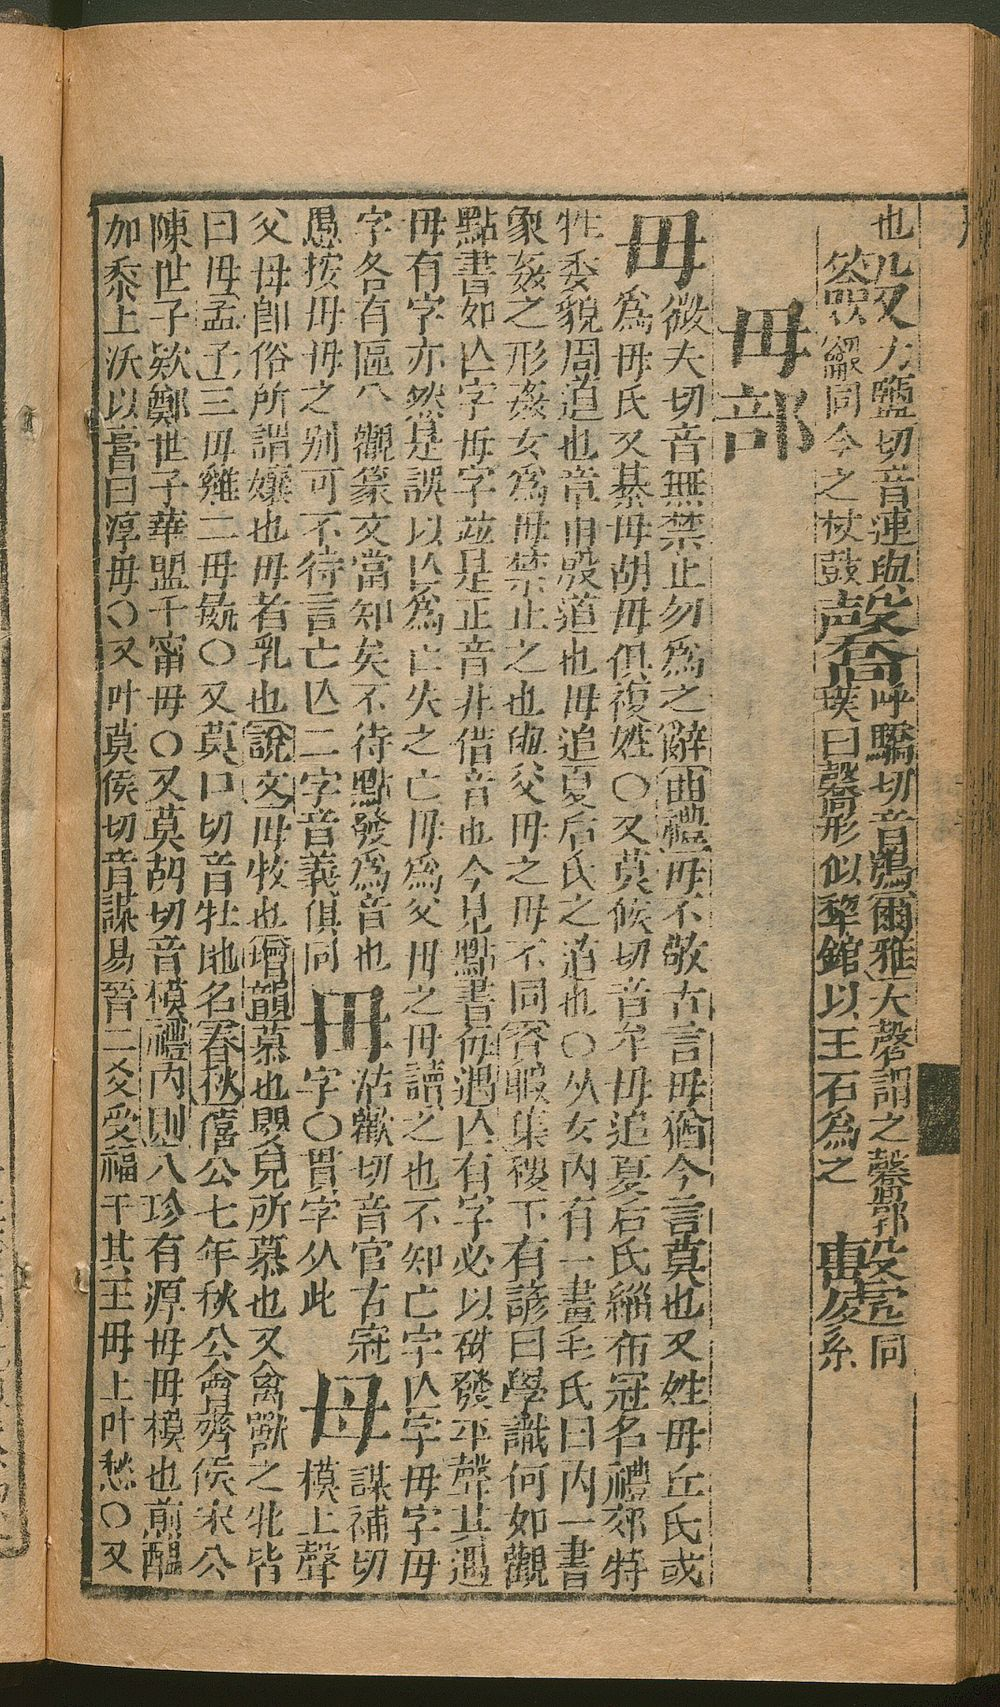 也 𣪊 力鹽切音連與 磬 呼驕切音鴞爾雅大磬謂之馨鄩 同
簽 同今之杖鼓 璞曰馨形似犂錧以玉石為之 系
毋部
毋 微夫切音無禁止勿為之辭曲禮毋不敬古言毋猶今言莫也又姓毋丘氏或
為毋氏又綦毋胡毋俱複姓〇又莫候切音牟毋追夏后氏緇布冠名禮郊特
牲委貌周道也章甫殷道也毋追夏后氏之道也〇从女内有一畫毛氏曰内一書
象姦之形姦女為毋禁止之也與父母之母不同容暇集稷下有諺曰學識何如觀
點書如亾字毋字竝是正音非借音也今見點書每遇亾有字必以硃發平聲其遇
毋有字亦然是誤以亾為亡失之亡毋為父母之母讀之也不知亡字亾字毋字母
字各有區分觀篆文當知矣不待點發為音也 毌 沽歡切音官古冠
愚按毋母之别可不待言亡亾二字音義俱同 字〇貫字从此 母 謀補切
模上聲
父母卽俗所謂孃也母者乳也說文母牧也增韻慕也嬰兒所慕也又禽獸之牝皆
曰母孟子三母雞二母彘〇又莫口切音牡地名春秋僖公七年秋公會齊侯宋公
陳世子欵鄭世子華盟于甯母〇又莫胡切音模禮内則八珍有淳母母模也煎醢
加黍上沃以膏曰淳母〇又叶莫侯切音謀易晉二爻受福于其王母上叶愁〇又